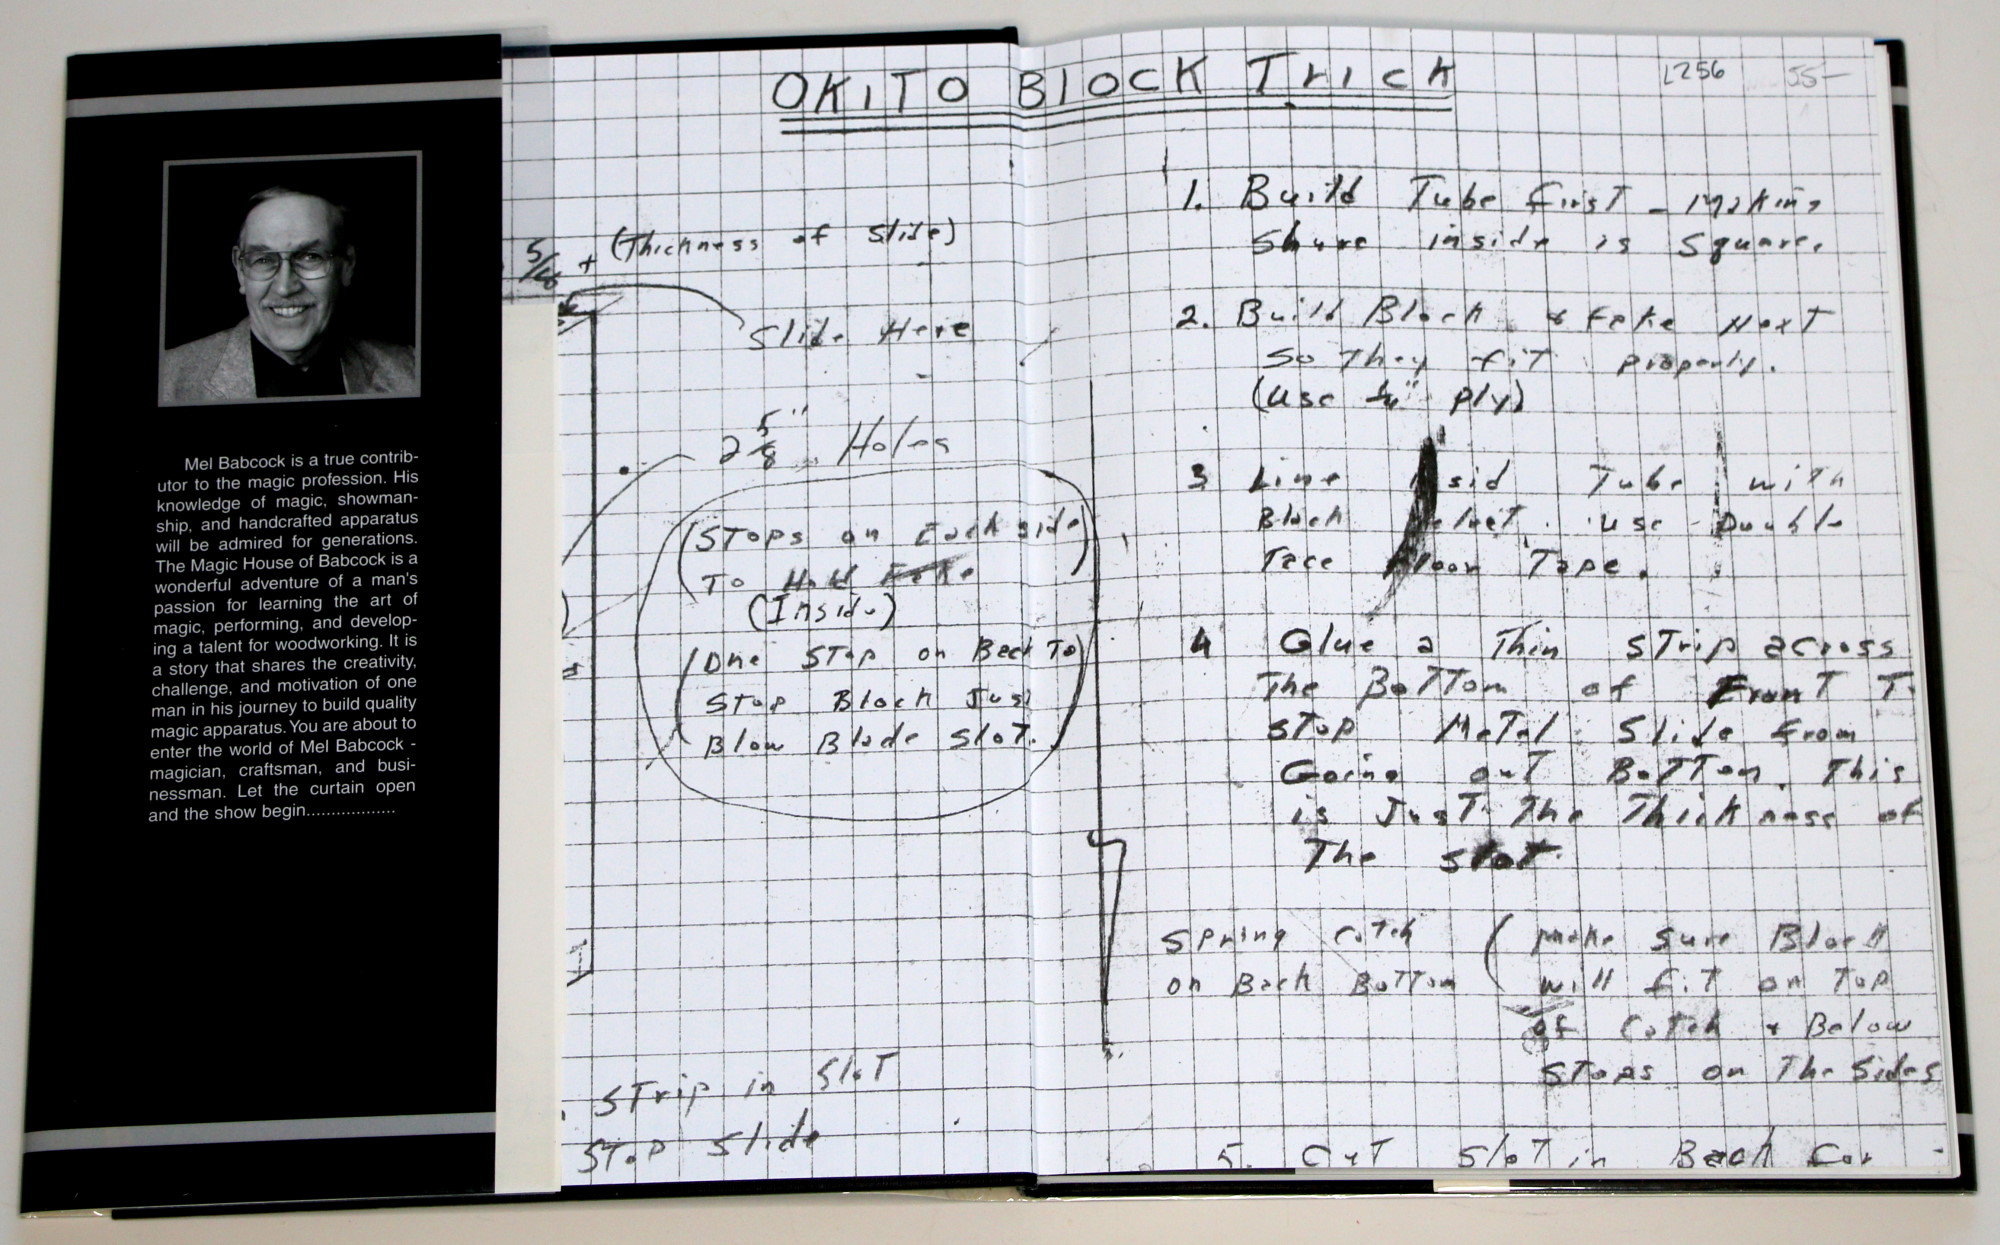 Mel Babcock is a true contrib-
utor to the magic profession. His
knowledge of magic, showman-
ship, and handcrafted apparatus
will be admired for generations.
The Magic House of Babcock is a
wonderful adventure of a man's
passion for learning the art of
magic, performing, and develop-
ing a talent for woodworking. It is
a story that shares the creativity,
challenge, and motivation of one
man in his journey to build quality
magic apparatus. You are about to
enter the world of Mel Babcock -
magician, craftsman, and busi-
nessman. Let the curtain open
and the show begin..................
OKITO BLOCK TRICK
5/8 + (Thickness of Slide)
Slide Here
2 5/8" Holes
(STOPS on Each side)
To Hold Fake
(Inside)
(One STOP on Back To)
Stop Block Just
Blow Blade Slot.
STrip in SloT
STOP Slide
L256 55-
1. Build Tube first - Making
Shure inside is Square.
2. Build Block & fake Next
So They fiT properly.
(Use 1/4" ply)
3 Line sid Tube with
Black use Double
Face Floor Tape.
4 Glue a Thin STrip across
The BoTTom of FronT T
STOP MeTal Slide from
Going out BoTTom. This
is JusT The Thickness of
The slot.
Spring catch
on Back BoTTom
(make sure Block
will fiT on Top
of Catch & Below
STOPS on The Sides
5. CuT SloT in Back for